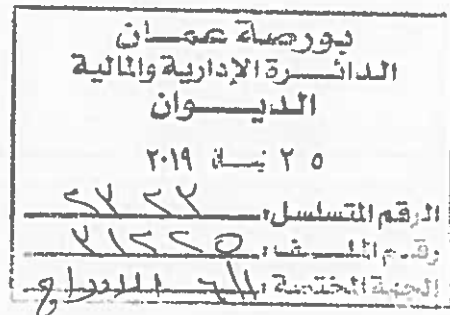 بورصة عمان
الدائرة الإدارية والمالية
الديوان
٢٥ نيسان ٢٠١٩
الرقم المتسلسل:
رقم الملف: ٣١٢٢٥
الجهة المختصة: